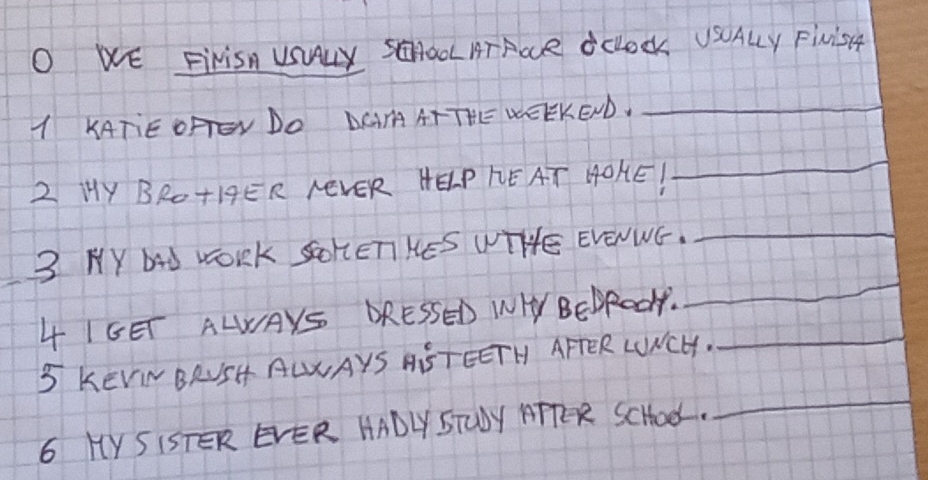 0 WE FINISH USUALLY SCHOOL AT FOUR O'CLOCK USUALLY FINISH
1 KATIE OFTEN DO AT THE WEEKEND.
2 MY BROTHER NEVER HELP ME AT HOME!
3 MY DAD WORK SOMETIMES IN THE EVENING.
4 I GET ALWAYS DRESSED IN MY BEDROOM.
5 KEVIN BRUSH ALWAYS HIS TEETH AFTER LUNCH.
6 MY SISTER EVER HADLY STUDY AFTER SCHOOL.